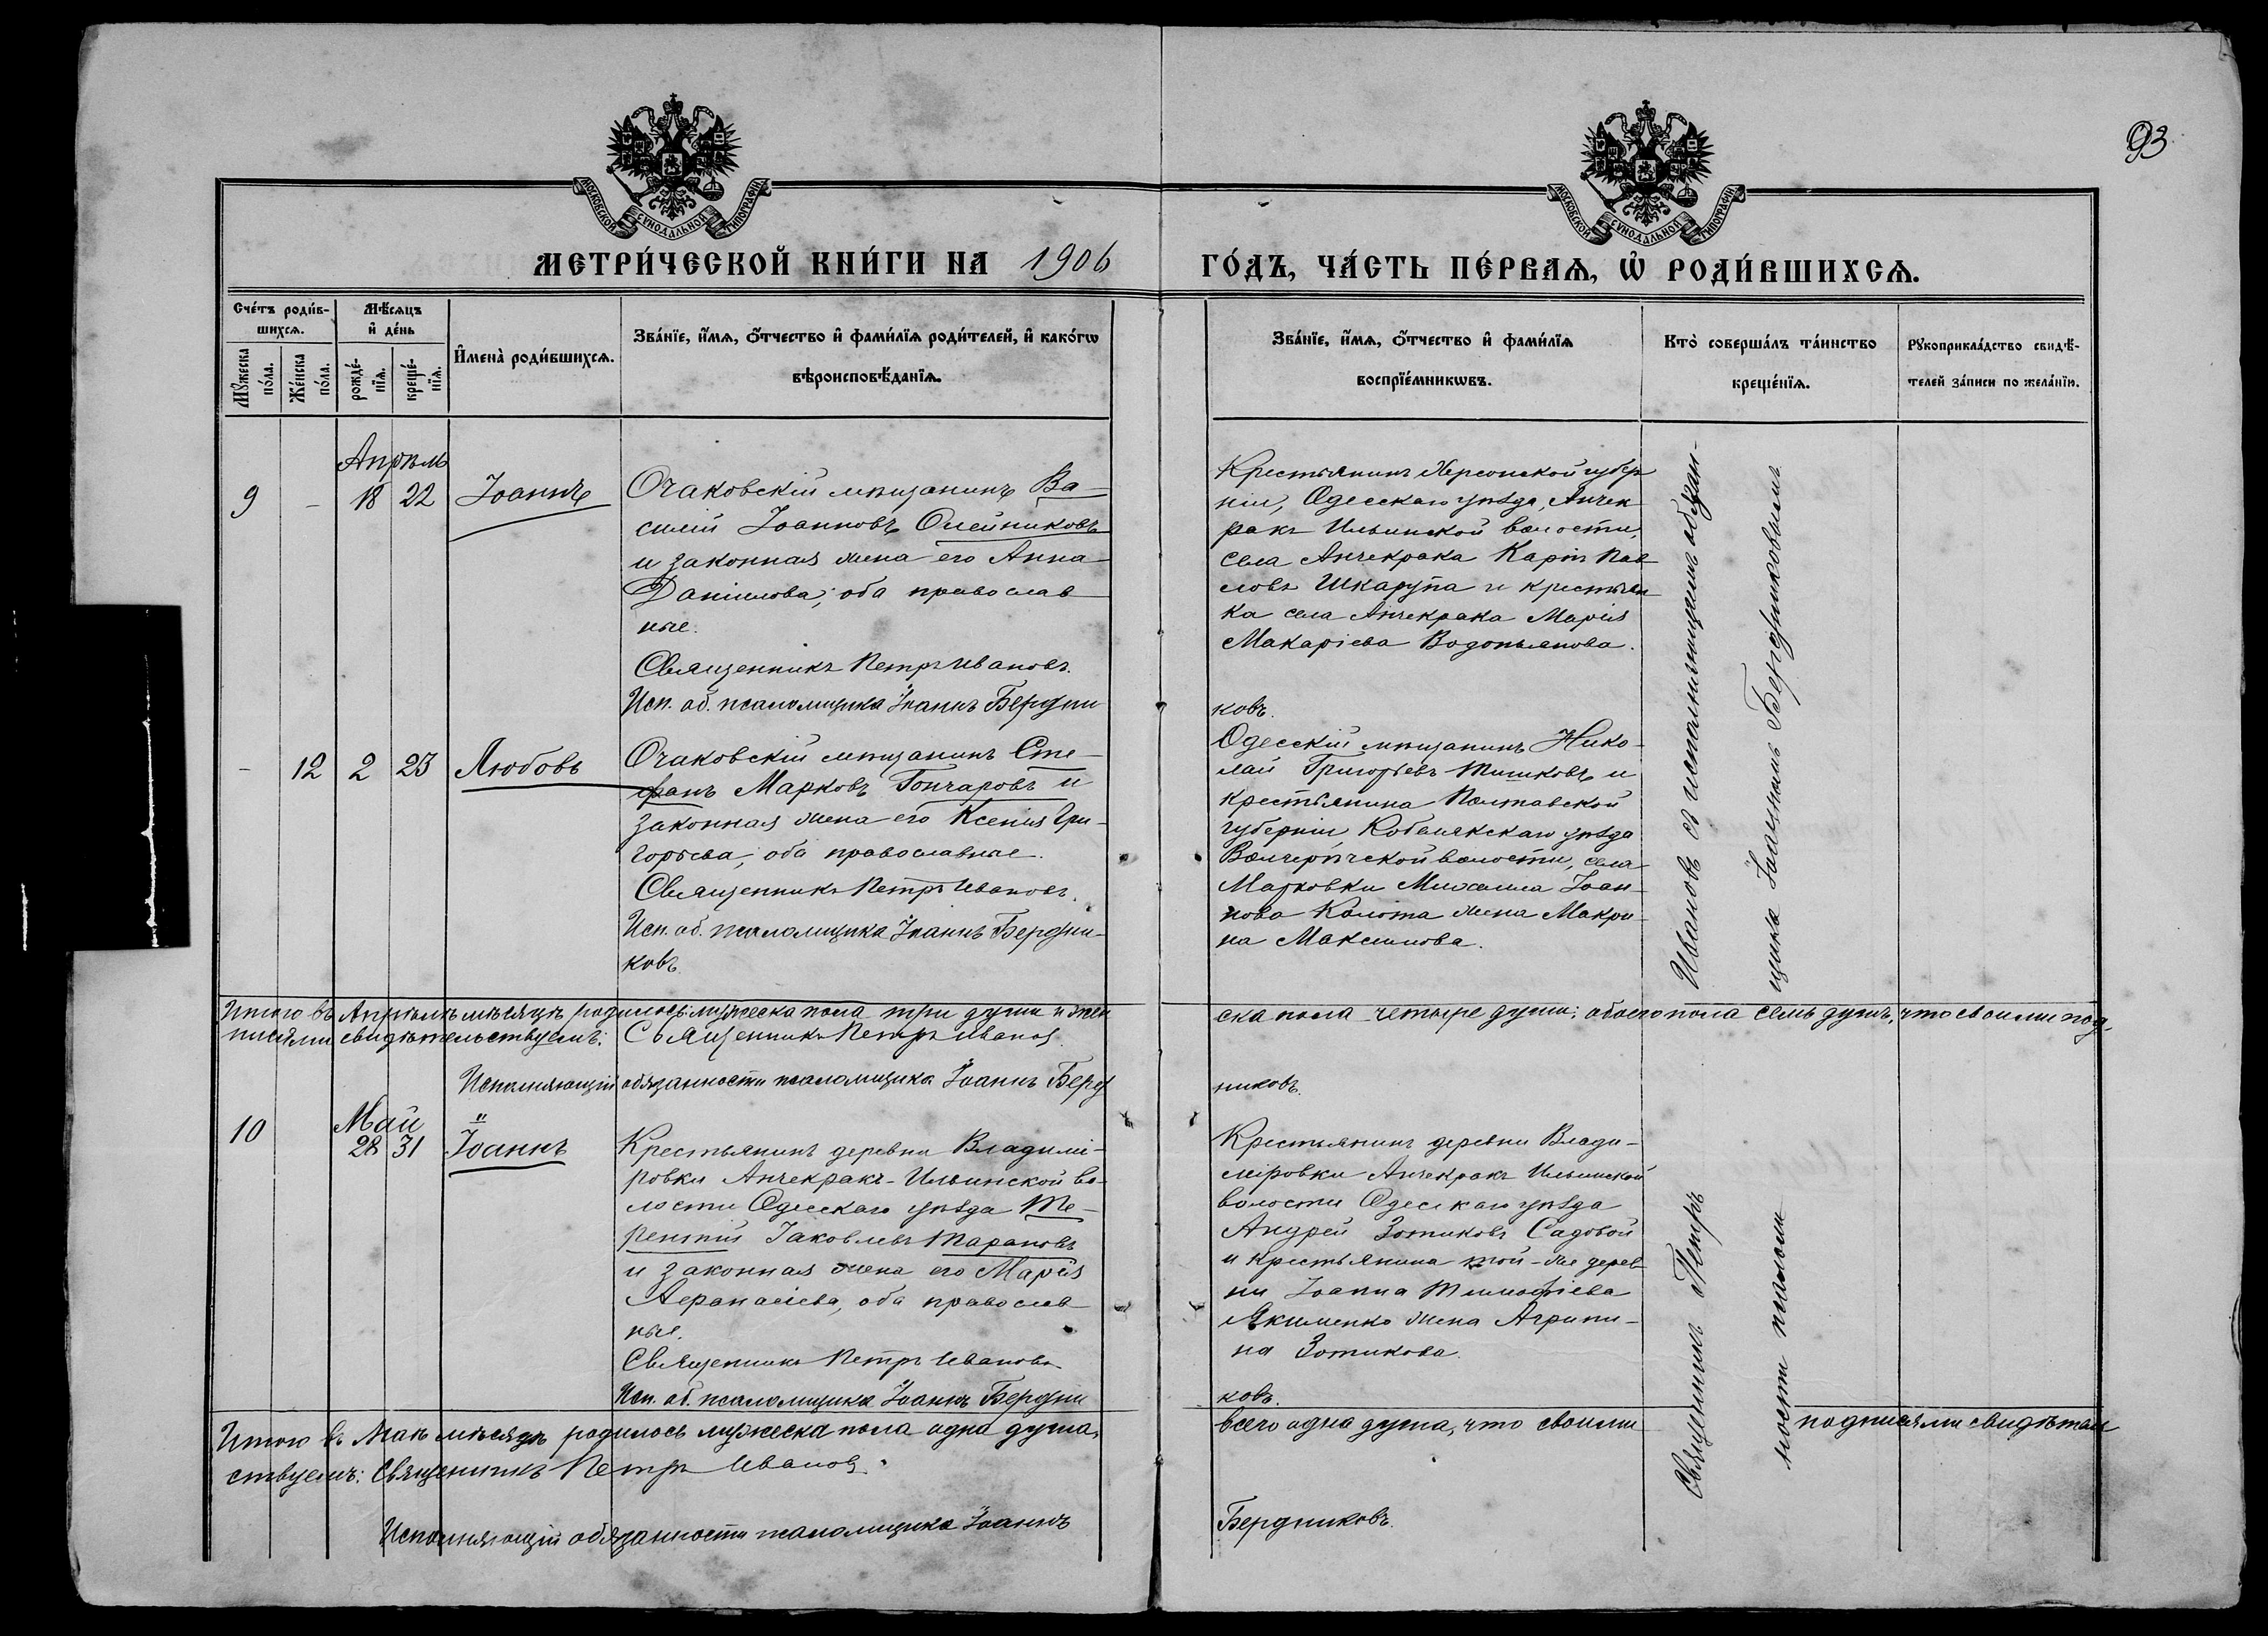 93
МОСКОВСКОЙ СѴНОДАЛЬНОЙ ТИПОГРАФІИ
МОСКОВСКОЙ СѴНОДАЛЬНОЙ ТИПОГРАФІИ
МЕТРИ́ЧЕСКОЙ КНИ́ГИ НА 1906
ГО́ДЪ, ЧА́СТЬ ПЕ́РВАѦ, Ѡ҆ РОДИ́ВШИХСѦ.
Сче́тъ роди́в-
шихсѧ.
Мꙋ́жеска по́ла.
Же́нска по́ла.
Мѣ́сѧцъ
и҆ де́нь
рожде́-
нїѧ.
креще́-
нїѧ.
И҆мена̀ роди́вшихсѧ.
Зва́нїе, и҆́мѧ, ѻ҆́тчество и҆ фами́лїѧ роди́телей, и҆ како́гѡ
вѣроисповѣ́данїѧ.
Зва́нїе, и҆́мѧ, ѻ҆́тчество и҆ фами́лїѧ
воспрїе́мникѡвъ.
Кто̀ соверша́лъ та́инство
креще́нїѧ.
Рꙋкоприкла́дство свидѣ́-
телей за́писи по жела́нїю.
Апрѣль
9 - 18 22 Іоаннъ
Очаковскій мѣщанинъ Ва-
силій Іоанновъ Олейниковъ
и законная жена его Анна
Даніилова; оба православ
ные.
Священникъ Петръ Ивановъ.
Исп. об. псаломщика Іоаннъ Бердни
Крестьянинъ Херсонской губер
ніи, Одесскаго уѣзда, Анчек
ракъ Ильинской волости,
села Анчекрака Карпъ Пав
ловъ Шкарупа и крестьян
ка села Анчекрака Марія
Макаріева Водопьянова.
ковъ.
- 12 2 23 Любовь
Очаковскій мѣщанинъ Сте-
фанъ Марковъ Гончаровъ и
законная жена его Ксенія Гри-
горьева; оба православные.
Священникъ Петръ Ивановъ.
Исп. об. псаломщика Іоаннъ Бердни-
ковъ
Одесскій мѣщанинъ Нико-
лай Григорьевъ Тишковъ и
крестьянина Полтавской
губерніи Кобелякскаго уѣзда
волости, села
Марковки Михаила Іоан-
нова Колота жена Макри-
на Максимова.
Итого въ Апрѣлѣ мѣсяцѣ родилось: мужеска пола три души и жен
ска пола четыре души; обоего пола семь душъ, что своими под-
писями свидѣтельствуемъ: Священникъ Петръ Ивановъ.
Исполняющій обязанности псаломщика Іоаннъ Берд
никовъ.
Май
10 28 31 Іоаннъ
Крестьянинъ деревни Владимі-
ровки Анчекракъ-Ильинской во-
лости Одесскаго уѣзда Те-
рентій Іаковлевъ Тарановъ
и законная жена его Марія
Аѳанасіева, оба православ
ные.
Священникъ Петръ Ивановъ.
Исп. об. псаломщика Іоаннъ Бердни
Крестьянинъ деревни Влади-
міровки Анчекракъ Ильинской
волости Одесскаго уѣзда
Андрей Зотиковъ Садовой
и крестьянина той-же дерев
ни Іоанна Тимофіева
Якименко жена Агрипи-
на Зотикова.
ковъ.
Священникъ Петръ Ивановъ съ исполняющимъ обязан-
ности псаломщика Іоанномъ Бердниковымъ
Итого въ Маѣ мѣсяцѣ родилось мужеска пола одна душа,
всего одна душа, что своими подписями свидѣтель
ствуемъ: Священникъ Петръ Ивановъ.
Исполняющій обязанности псаломщика Іоаннъ
Бердниковъ.